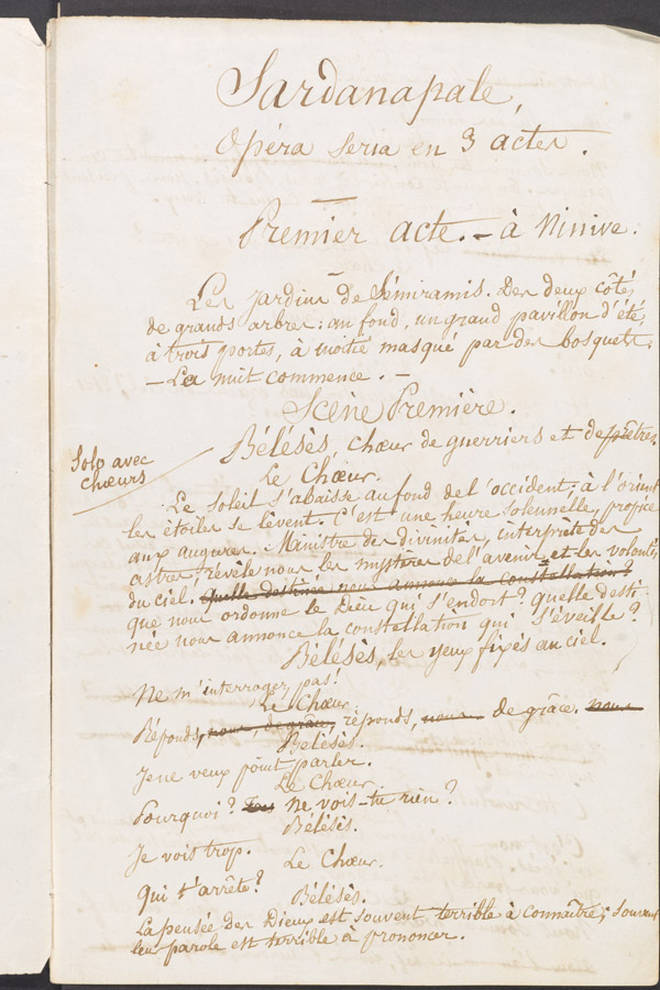 Sardanapale,
Opéra seria en 3 actes.
Premier acte. – à Ninive.
Les jardins de Sémiramis. Des deux côtés,
de grands arbres: au fond, un grand pavillon d'été,
à trois portes, à moitié masqué par des bosquets.
– La nuit commence. –
Scène Première.
Bélésès, chœur de guerriers et de prêtres.
Solo avec
chœurs
Le Chœur.
Le soleil s'abaisse au fond de l'occident; à l'orient
les étoiles se lèvent. C'est une heure solennelle, propice
aux augures. Ministre des divinités, interprète des
astres, révèle nous les mystères de l'avenir et les volontés
du ciel. Quelle destinée nous annonce la constellation?
que nous ordonne le Dieu qui s'endort? Quelle desti-
née nous annonce la constellation qui s'éveille?
Bélésès, les yeux fixés au ciel.
Ne m'interrogez pas!
Le Chœur.
Réponds, nous, de grâce, réponds, nous de grâce. nous
Bélésès.
Je ne veux point parler.
Le Chœur.
Pourquoi? Ne vois-tu rien?
Bélésès.
Je vois trop.
Le Chœur.
Qui t'arrête?
Bélésès.
La pensée des Dieux est souvent terrible à connaître; souvent
leur parole est terrible à prononcer.